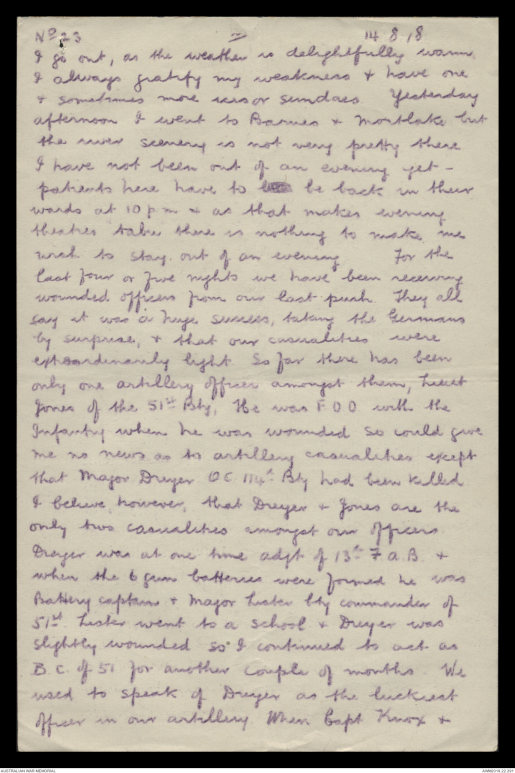 No 23 II 14 8 18
I go out, as the weather is delightfully warm.
I always gratify my weakness & have one
& sometimes more ices or sundaes. Yesterday
afternoon I went to Barnes & Mortlake but
the river scenery is not very pretty there
I have not been out of an evening yet -
patients here have to be back in their
wards at 10 p m & as that makes evening
theatres taboo there is nothing to make me
wish to stay out of an evening. For the
last four or five nights we have been receiving
wounded officers from our last push. They all
say it was a huge success, taking the Germans
by surprise, & that our casualities were
extraordinarily light. So far there has been
only one artillery officer amongst them, Lieut
Jones of the 51st Bty, He was F O O with the
Infantry when he was wounded so could give
me no news as to artillery casualities except
that Major Dreyer OC 114th Bty had been killed
I believe, however, that Dreyer & Jones are the
only two casualities amongst our officers.
Dreyer was at one time adjt of 13th F.A.B. &
when the 6 gun batteries were formed he was
Battery captain & Major Lister bty commander of
51st. Lister went to a school & Dreyer was
slightly wounded so I continued to act as
B.C. of 51 for another couple of months. We
used to speak of Dreyer as the luckiest
officer in our artillery. When Capt Knox &
AUSTRALIAN WAR MEMORIAL